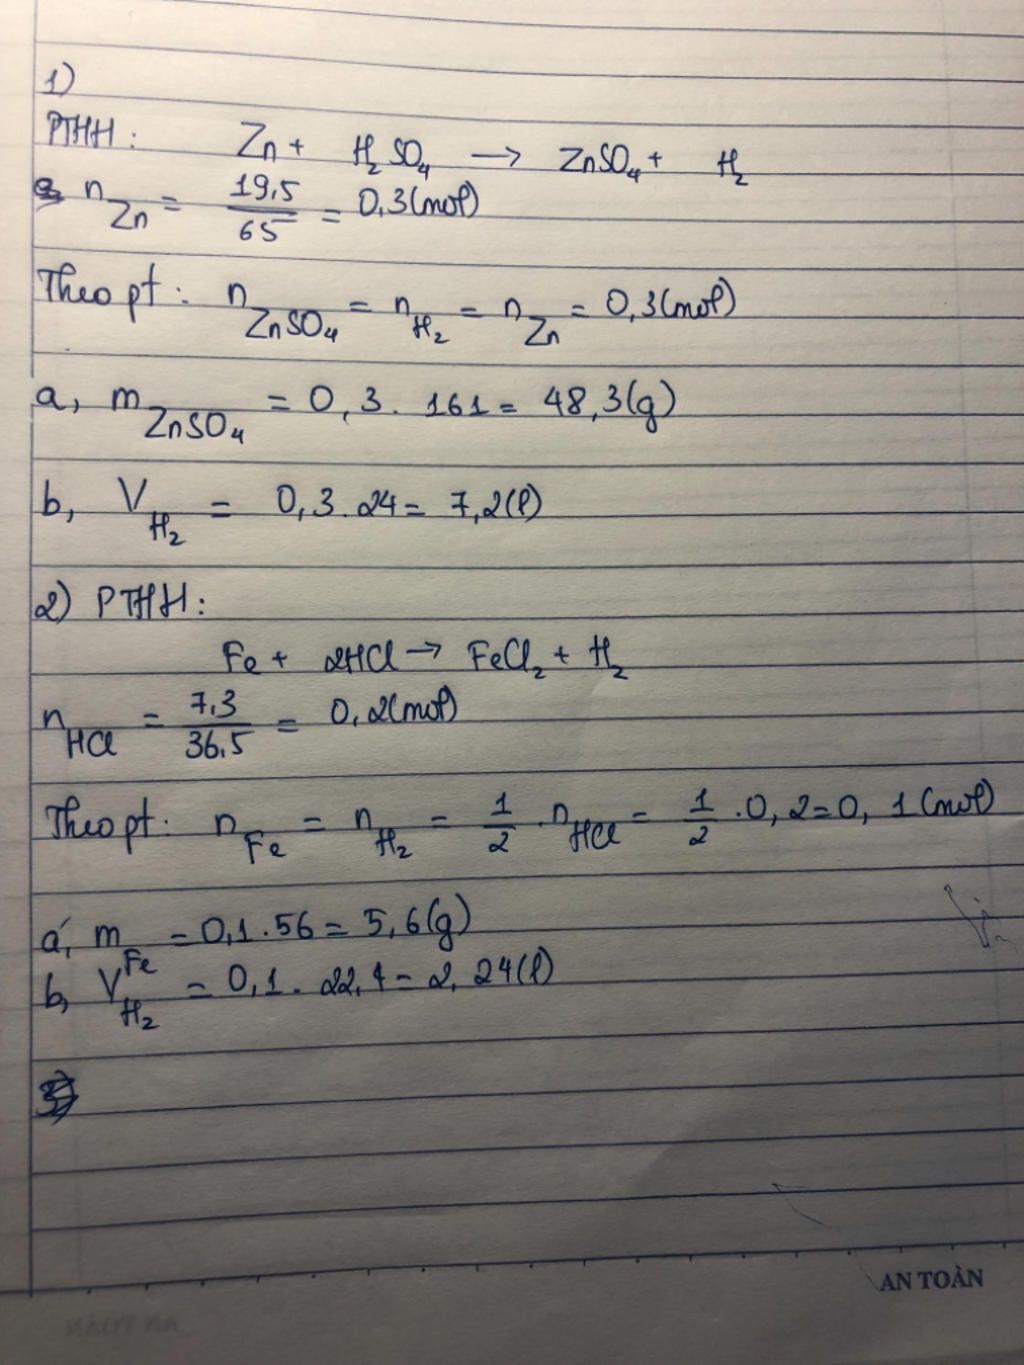 1)
PTHH: Zn + H₂SO₄ → ZnSO₄ + H₂
n Zn = 19,5/65 = 0,3(mol)
Theo pt: n ZnSO₄ = n H₂ = n Zn = 0,3(mol)
a, m ZnSO₄ = 0,3. 161 = 48,3(g)
b, V H₂ = 0,3.24 = 7,2(l)
2) PTHH:
Fe + 2HCl → FeCl₂ + H₂
n HCl = 7,3/36,5 = 0,2(mol)
Theo pt: n Fe = n H₂ = 1/2 .n HCl = 1/2 .0,2=0,1(mol)
a, m Fe = 0,1.56 = 5,6(g)
b, V H₂ = 0,1. 22,4 = 2,24(l)
AN TOÀN